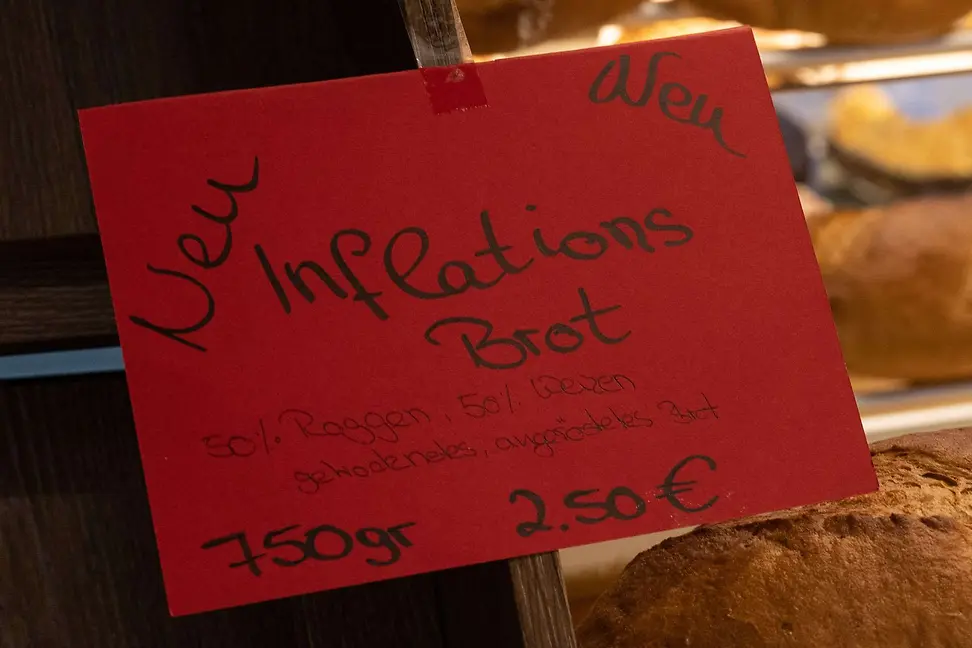 Neu
Neu
Inflations
Brot
50% Roggen, 50% Weizen
getrocknetes, angeröstetes Brot
750gr 2.50 €